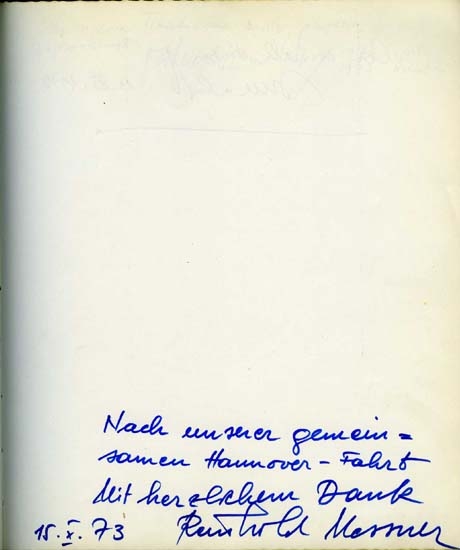 Nach unserer gemein=
samen Hannover-Fahrt
Mit herzlichem Dank
15. X. 73 Reinhold Messner